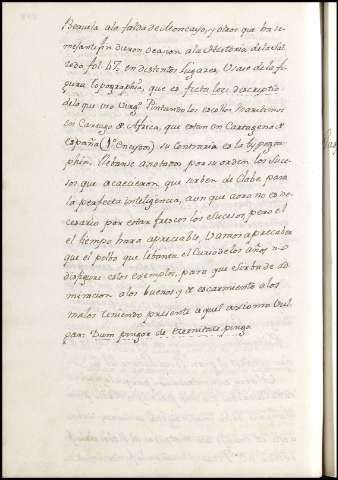 Boruvia ala falda de Moncayo, y otros que ha se-
mejante fin dieron ocasion a la Historia de la
fol. 47. en distintos lugares. Usase de la fi-
gura Topographia, que es ficta loci descriptio
de la que uso Virgº. Pintando los escollos maritimos
en Cartago de Africa, que estan en Cartagena de
España (1º Eneydos) su contraria es la typogra-
phia. Llebanse anotados por su orden los suce-
sos que acaecieron, que sirben de Clabe para
la perfecta inteligencia, aun que aora no es ne-
cesario por estar frescos los sucesos, pero el
el tiempo hara apreciable. Vamos a precaber
que el polbo que lebanta el Curso de los años no
disfigure estos exemplos, para que sirba de ad
miracion a los buenos y de escarmiento a los
malos teniendo presente aquel axioma Vul
gar: Dum pingor de Eternitate pingo